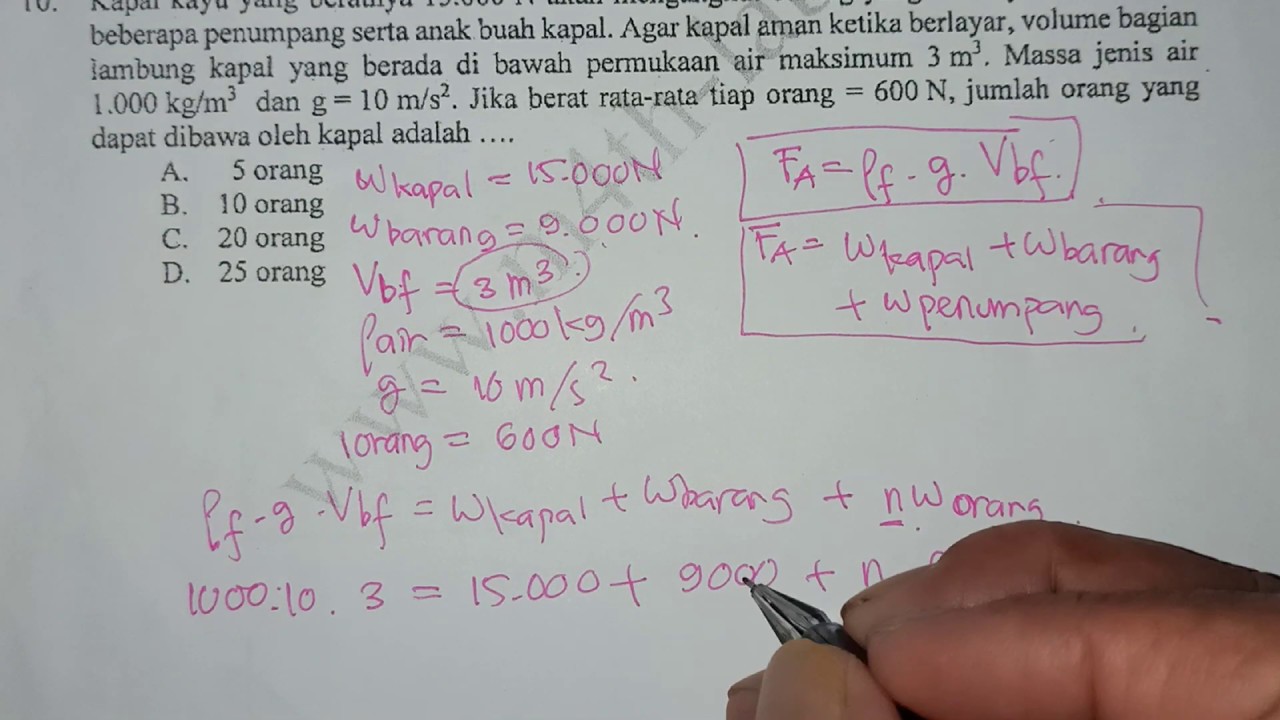 10. Kapal kayu yang beratnya 15.000 N akan
beberapa penumpang serta anak buah kapal. Agar kapal aman ketika berlayar, volume bagian
lambung kapal yang berada di bawah permukaan air maksimum 3 m³. Massa jenis air
1.000 kg/m³ dan g = 10 m/s². Jika berat rata-rata tiap orang = 600 N, jumlah orang yang
dapat dibawa oleh kapal adalah ....
A. 5 orang
B. 10 orang
C. 20 orang
D. 25 orang
Wkapal = 15.000N
Wbarang = 9.000N.
Vbf = 3 m³.
ρair = 1000 kg/m³
g = 10 m/s².
1orang = 600N
FA = ρf - g. Vbf.
FA = Wkapal + Wbarang
+ Wpenumpang.
ρf - g . Vbf = Wkapal + Wbarang + nW orang
1000.10 . 3 = 15.000 + 9000 + n